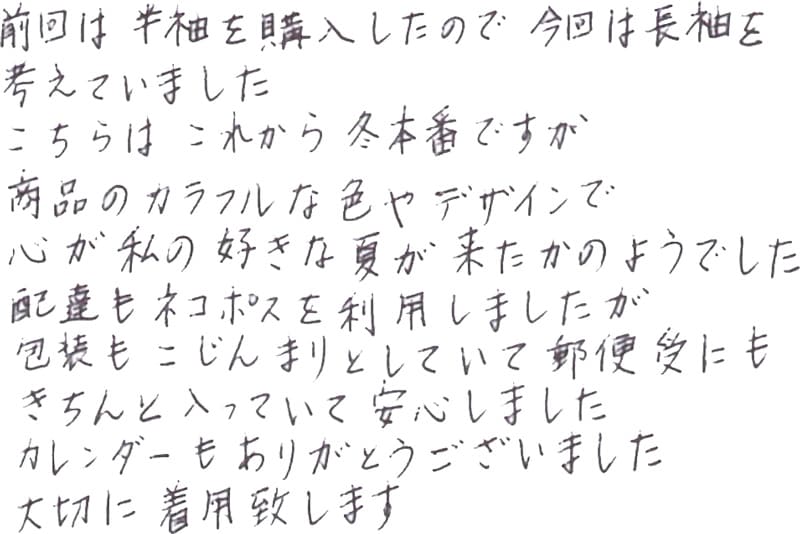 前回は半袖を購入したので今回は長袖を
考えていました
こちらはこれから冬本番ですが
商品のカラフルな色やデザインで
心が私の好きな夏が来たかのようでした
配達もネコポスを利用しましたが
包装もこじんまりとしていて郵便受にも
きちんと入っていて安心しました
カレンダーもありがとうございました
大切に着用致します